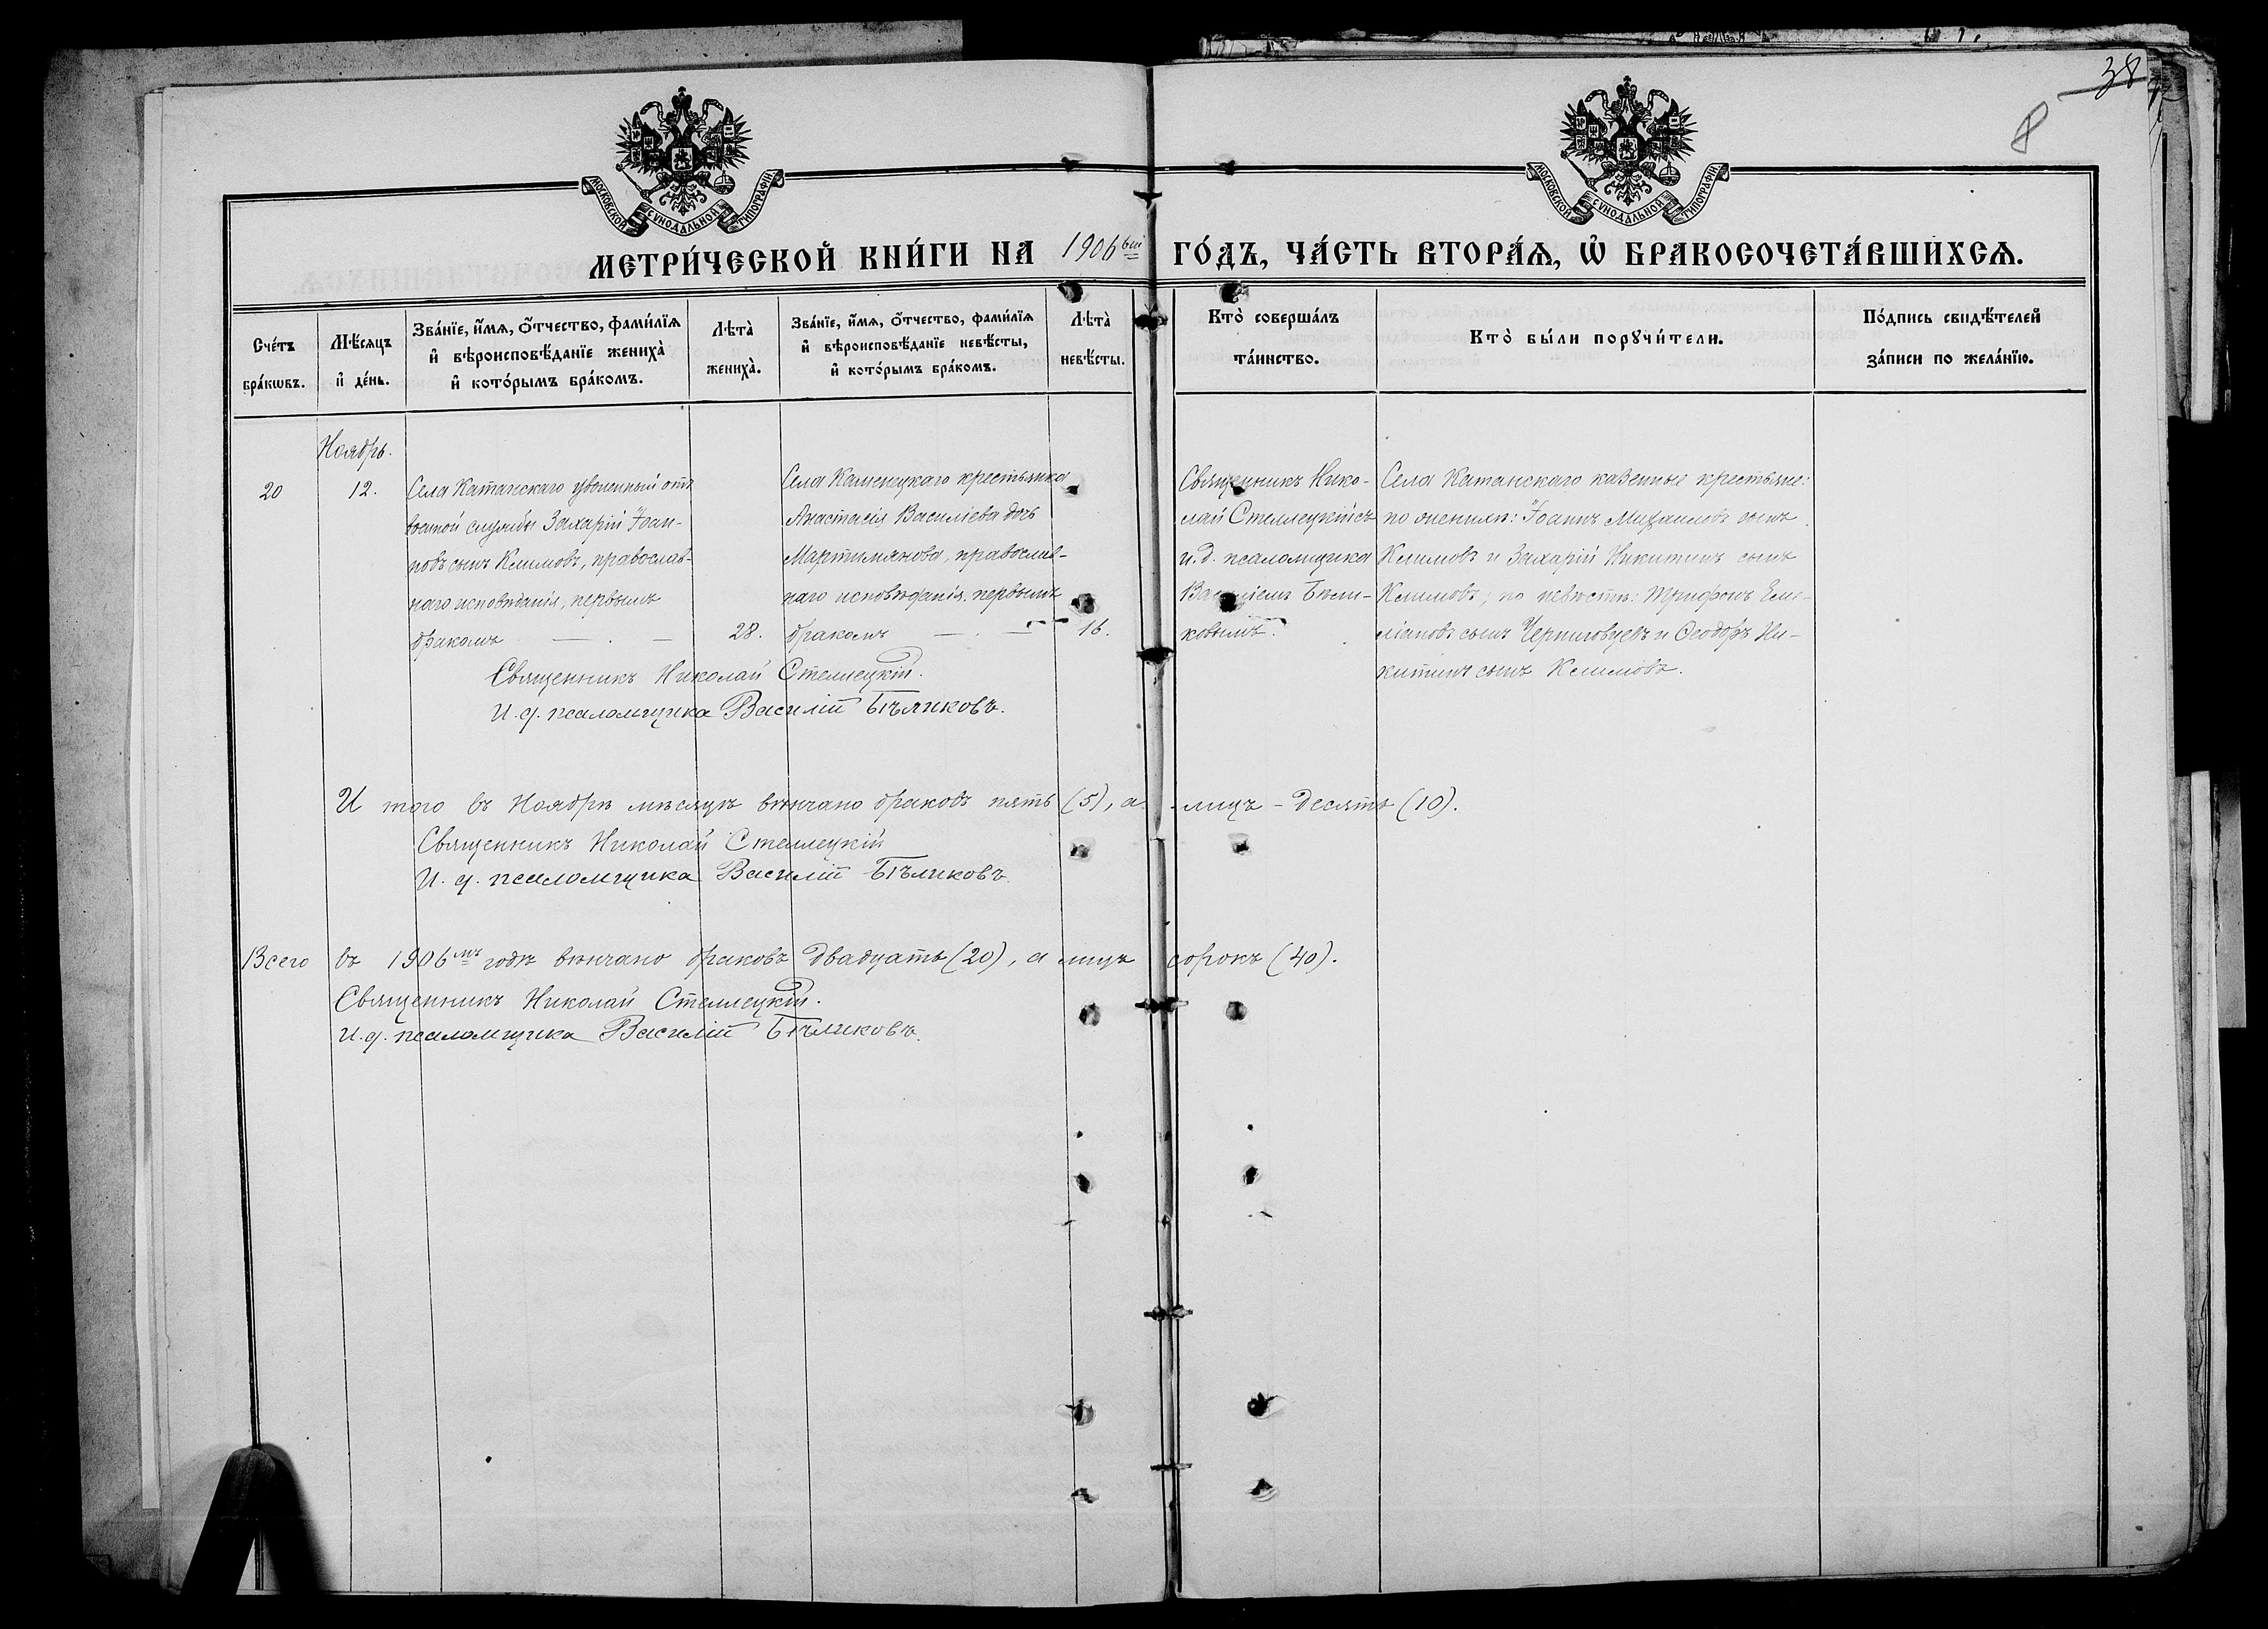 38
8
МОСКОВСКОЙ СѴНОДАЛЬНОЙ ТИПОГРАФІИ
МОСКОВСКОЙ СѴНОДАЛЬНОЙ ТИПОГРАФІИ
МЕТРИ́ЧЕСКОЙ КНИ́ГИ НА 1906 вый ГО́ДЪ, ЧА́СТЬ ВТОРА́Ѧ, Ѽ БРАКОСОЧЕТА́ВШИХСѦ.
Сче́тъ бра́кѡвъ.
Мѣ́сяцъ и҆ де́нь.
Зва́нїе, и҆́мѧ, ѻ҆́тчество, фами́лїѧ и҆ вѣроисповѣ́данїе жениха̀ и҆ кото́рымъ бра́комъ.
Лѣта̀ жениха̀.
Зва́нїе, и҆́мѧ, ѻ҆́тчество, фами́лїѧ и҆ вѣроисповѣ́данїе невѣ́сты, и҆ кото́рымъ бра́комъ.
Лѣта̀ невѣ́сты.
Кто̀ соверша́лъ та́инство.
Кто̀ бы́ли порꙋчи́тели.
По́дпись свидѣ́телей за́писи по жела́нїю.
Ноябрь.
20
12.
Села Катанскаго уволенный отъ
военной службы Захарій Іоан-
новъ сынъ Климовъ, православ-
наго исповѣданія, первымъ
бракомъ — . —
28.
Села Каменецкаго крестьянка
Анастасія Василіева дочь
Мартимянова, православ-
наго исповѣданія, первымъ
бракомъ — . —
16.
Священникъ Нико-
лай Стеллецкій съ
и. д. псаломщика
Василіемъ Бѣли-
ковымъ.
Села Катанскаго казенные крестьяне:
по женихѣ: Іоаннъ Михаиловъ сынъ
Климовъ и Захарій Никитинъ сынъ
Климовъ; по невѣстѣ: Трифонъ Еме-
ліановъ сынъ Черниговцевъ и Ѳеодоръ Ни-
китинъ сынъ Климовъ.
Священникъ Николай Стеллецкій.
И. д. псаломщика Василій Бѣликовъ.
И того въ Ноябрѣ мѣсяцѣ вѣнчано браковъ пять (5), а лицъ - десять (10).
Священникъ Николай Стеллецкій
И. д. псаломщика Василій Бѣликовъ
Всего въ 1906 мъ годѣ вѣнчано браковъ двадцать (20), а лицъ сорокъ (40).
Священникъ Николай Стеллецкій.
И. д. псаломщика Василій Бѣликовъ.